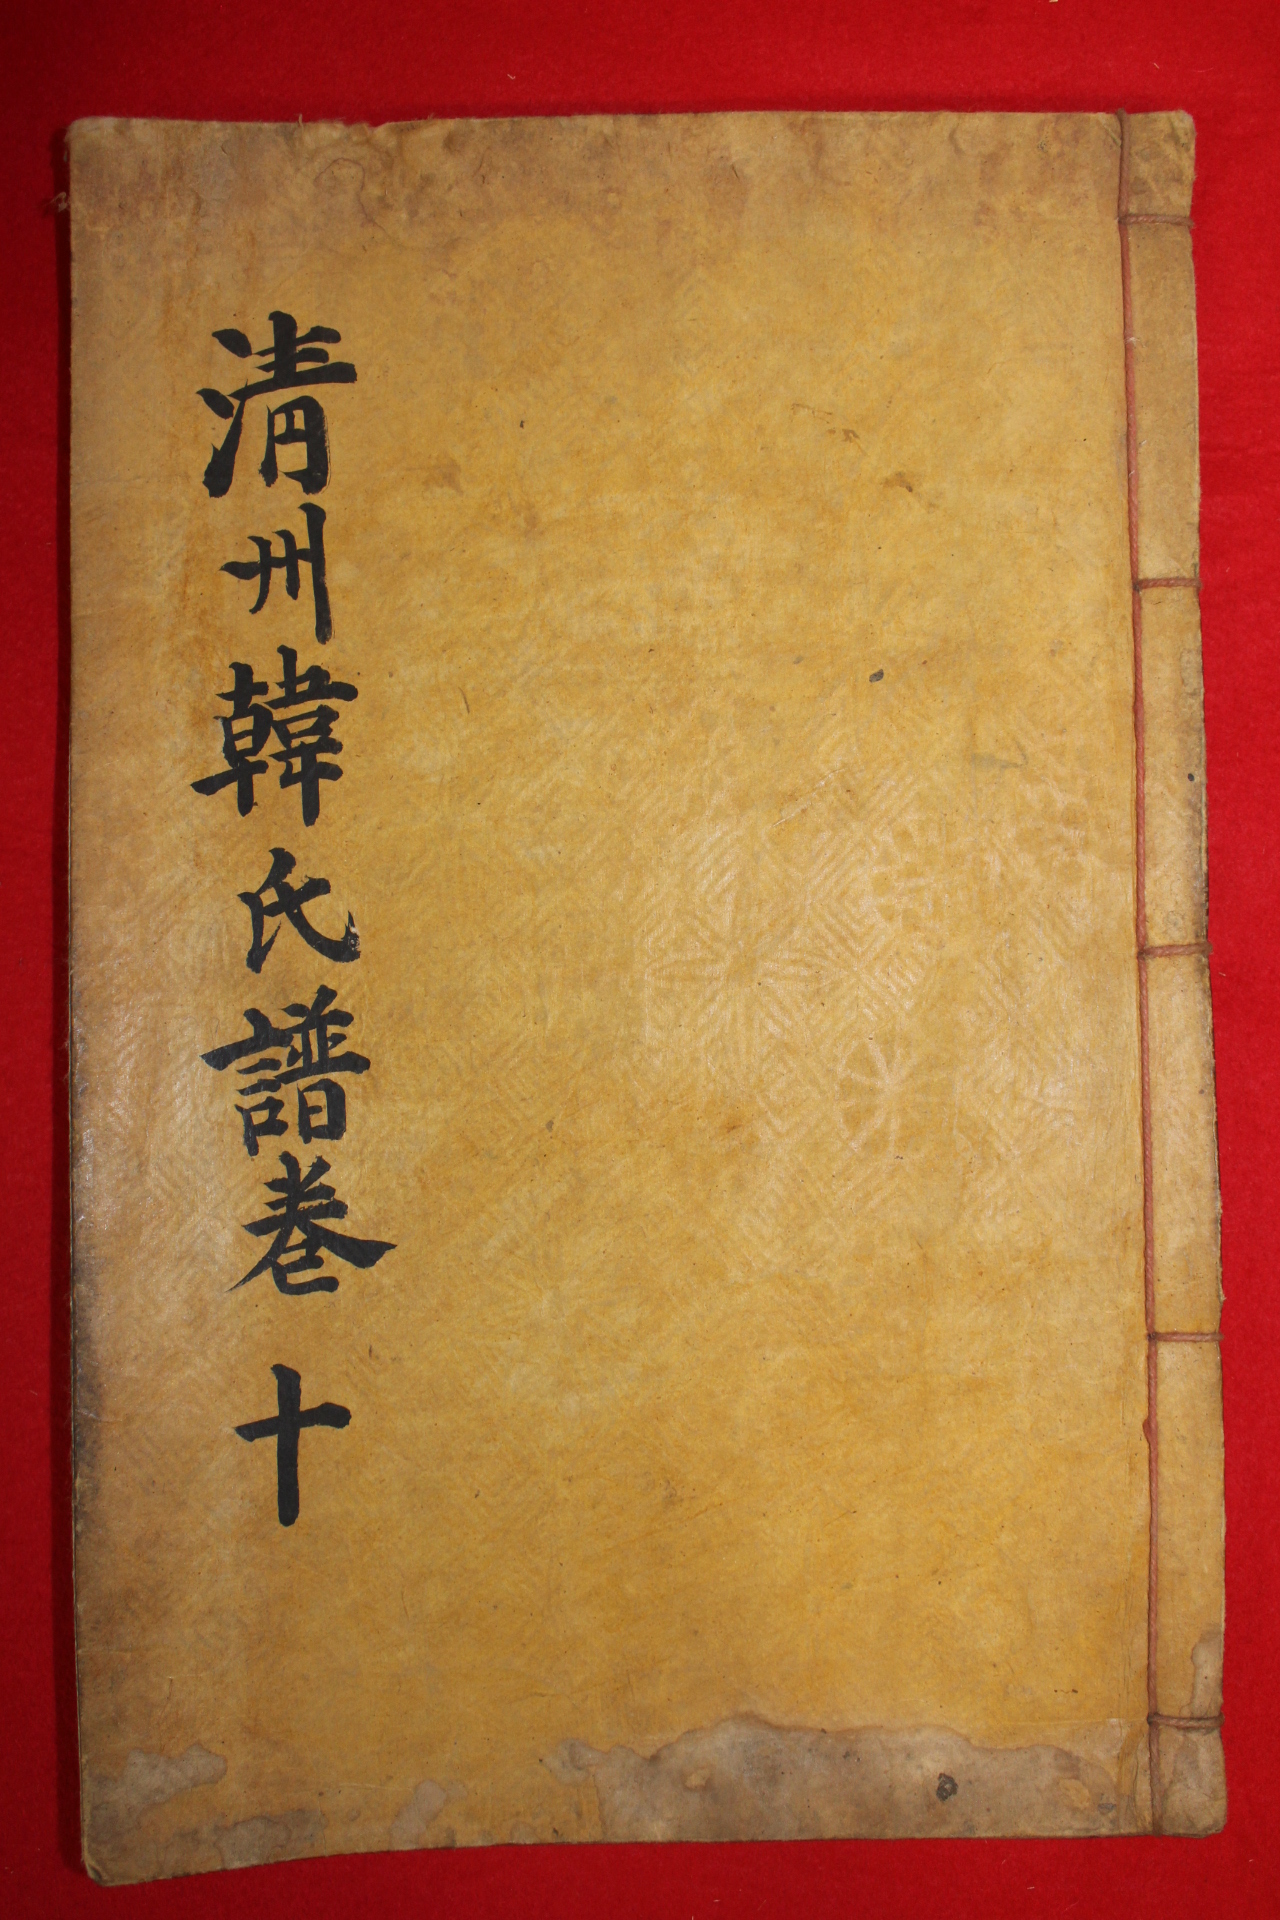 淸州韓氏譜卷 十